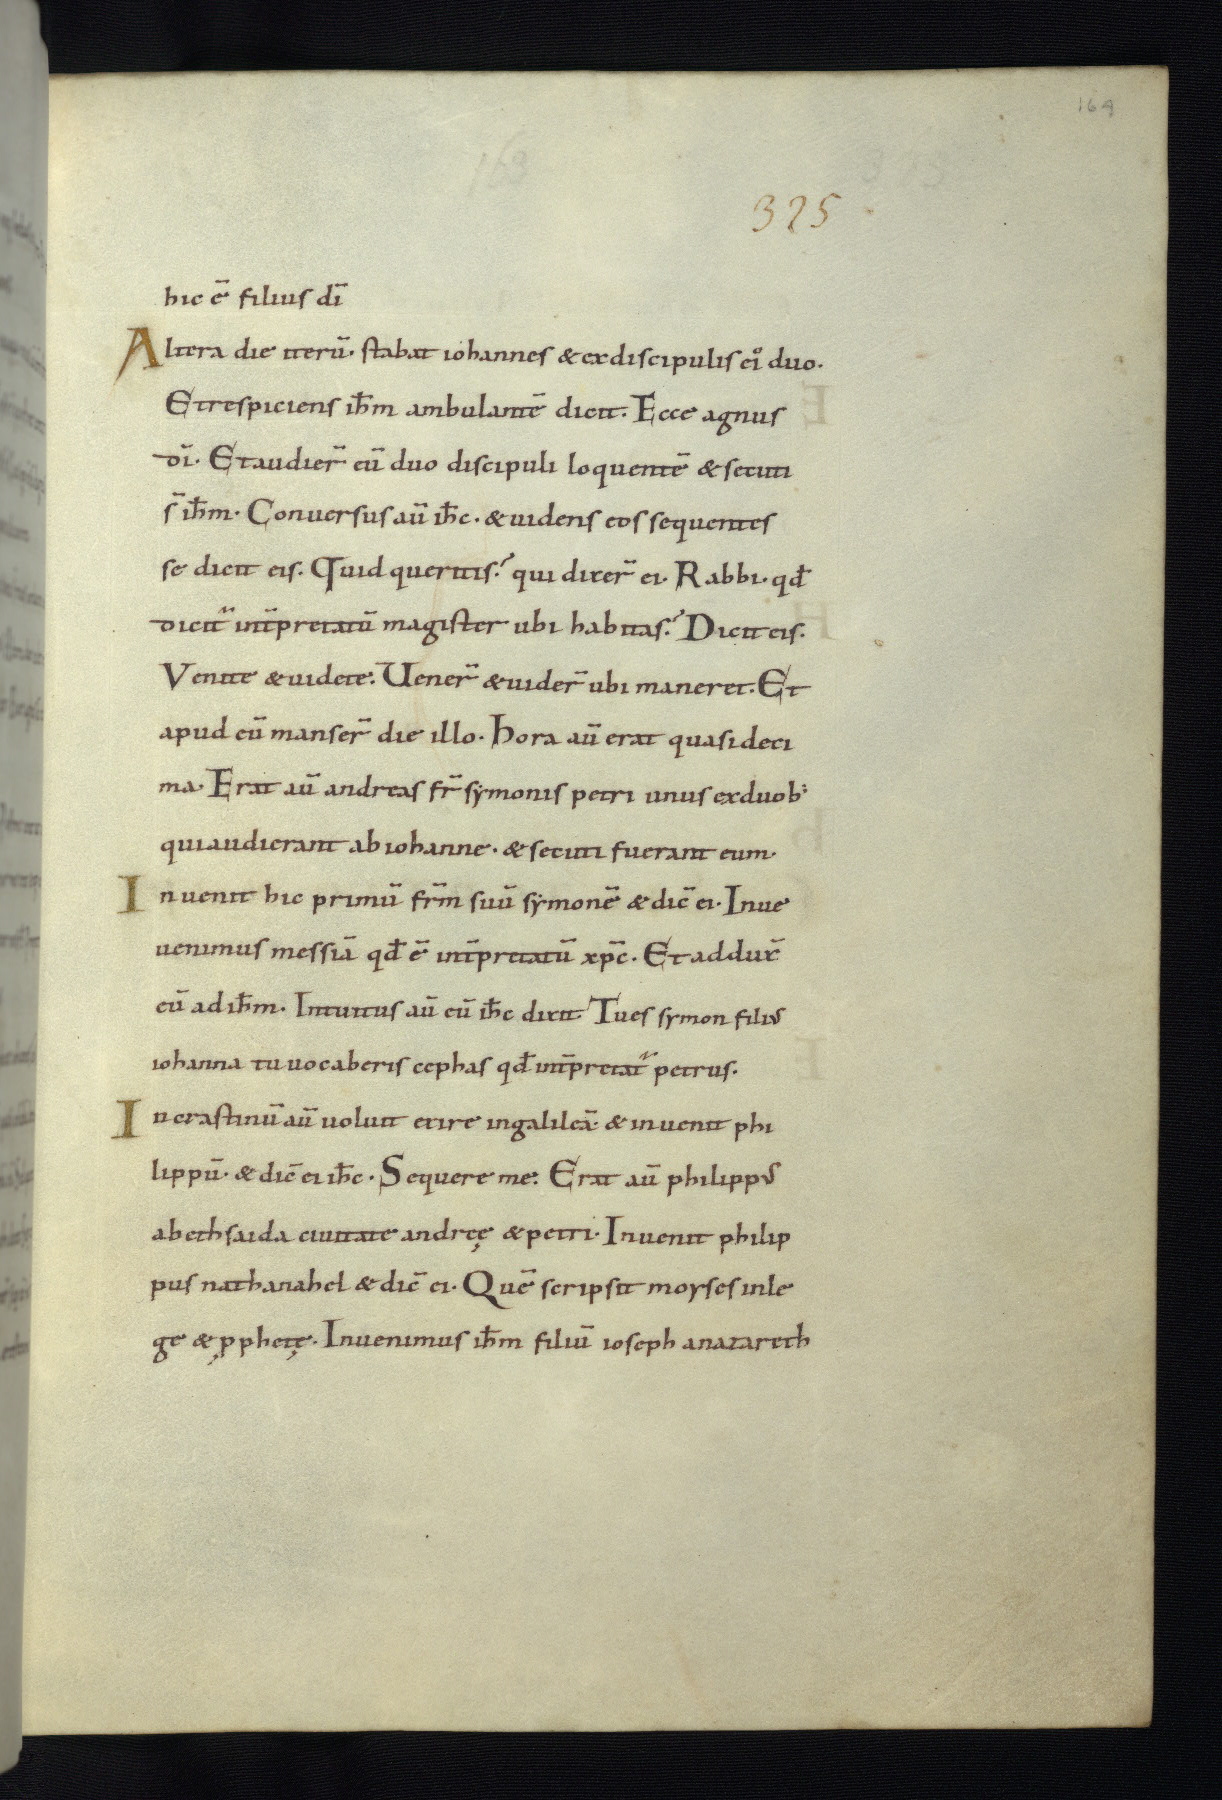 164
325
hic ē filius dī
Altera die iterū· stabat iohannes & ex discipulis ei᷒ duo·
Et respiciens ih̄m ambulantē dicit· Ecce agnus
dī· Et audier̄ eū duo discipuli loquentē & secuti
s̄ ih̄m· Conuersus aū ih̄c· & uidens eos sequentes
se dicit eis· Quid queritis? qui dixer̄ ei· Rabbi· qd̄
dicit᷑ int̄pretatū magister ubi habitas? Dicit eis·
Venite & uidete· Uener̄ & uider̄ ubi maneret· Et
apud eū manser̄ die illo· hora aū erat quasi deci
ma· Erat aū andreas fr̄ symonis petri unus ex duob;
qui audierant ab iohanne· & secuti fuerant eum·
Inuenit hic primū fr̄m suū symonē & dic̄ ei· Inue
uenimus messiā qd̄ ē int̄pretatū xp̄c· Et addux̄
eū ad ih̄m· Intuitus aū eū ih̄c dixit· Tu es symon filius
iohanna tu uocaberis cephas qd̄ int̄pretat᷑ petrus·
In crastinū aū uoluit exire in galileā· & inuenit phi
lippū· & dic̄ ei ih̄c· Sequere me· Erat aū philippus
a bethsaida ciuitate andreę & petri· Inuenit philip
pus nathanahel & dic̄ ei· Quē scripsit moyses in le
ge & ꝓphetę· Inuenimus ih̄m filiū ioseph a nazareth